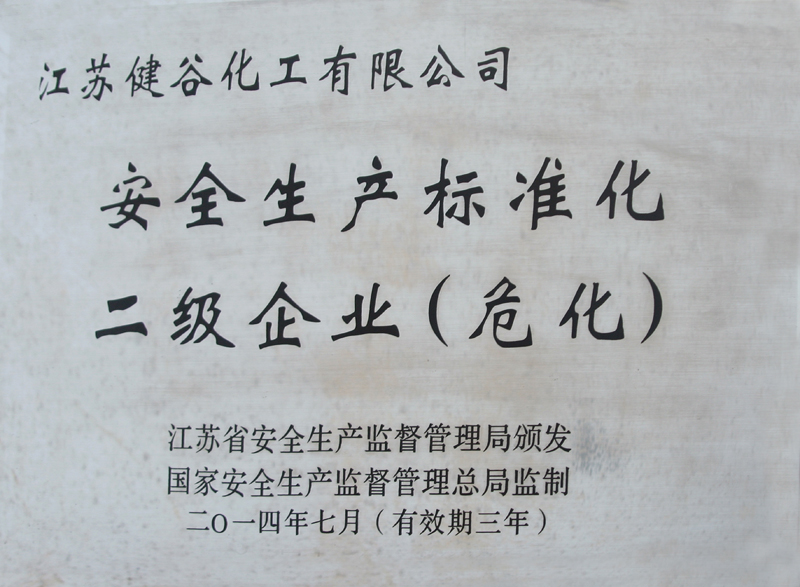 江苏健谷化工有限公司
安全生产标准化
二级企业(危化)
江苏省安全生产监督管理局颁发
国家安全生产监督管理总局监制
二O一四年七月(有效期三年)